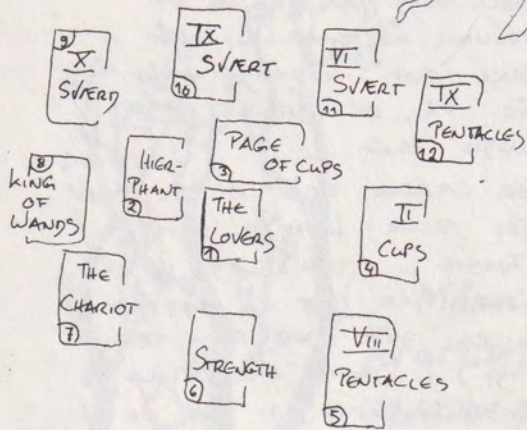 9
X
SVÆRD
IX
SVÆRT
10
VI
SVÆRT
11
IX
PENTACLES
12
8
KING
OF
WANDS
HIER-
PHANT
2
PAGE
OF CUPS
3
THE
LOVERS
1
II
CUPS
4
THE
CHARIOT
7
STRENGTH
6
VIII
PENTACLES
5